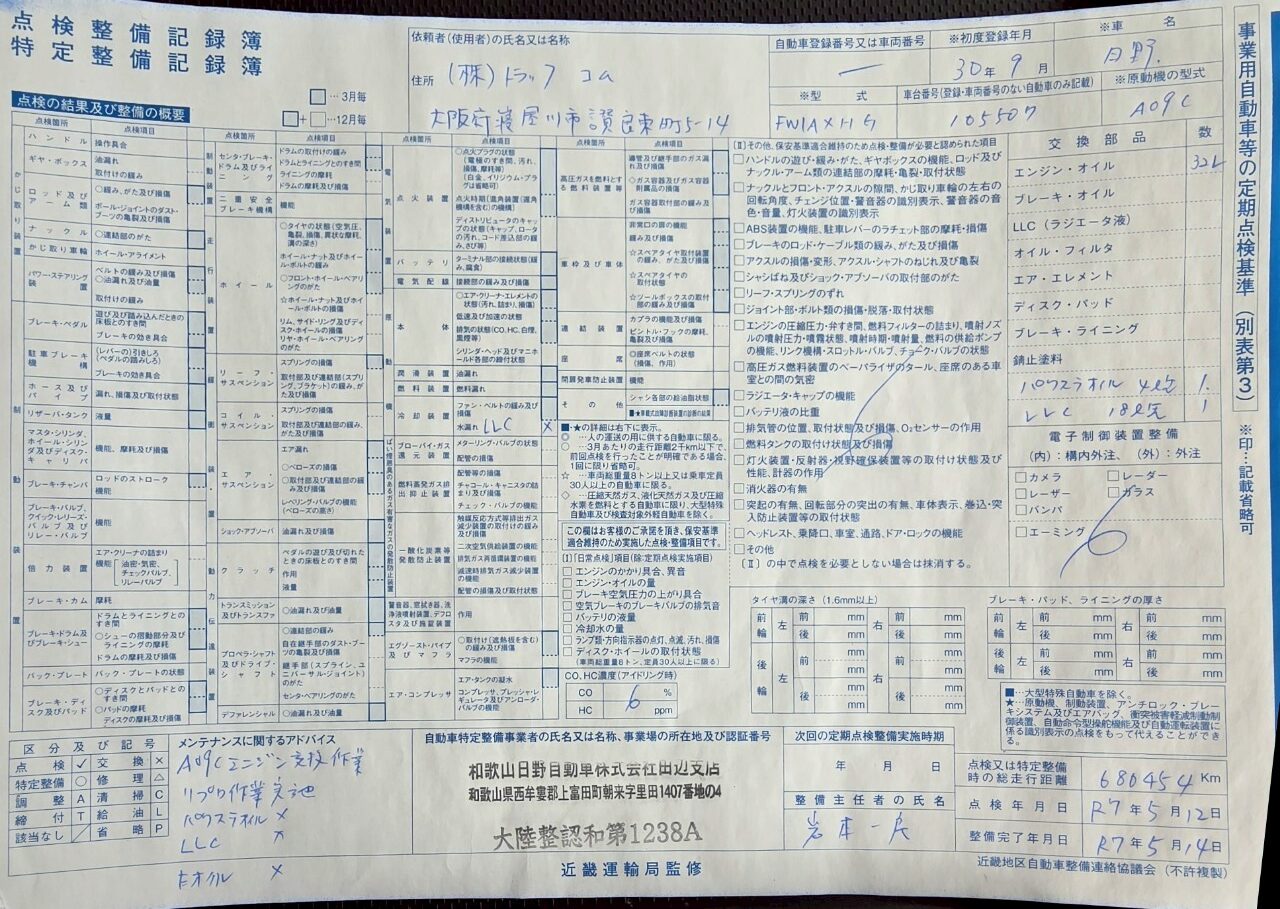 点検整備記録簿
特定整備記録簿
□ … 3月毎
□+□ …12月毎
点検の結果及び整備の概要
依頼者(使用者)の氏名又は名称
(株)トラック コム
住所
大阪府寝屋川市讃良東町5-14
自動車登録番号又は車両番号
—
※初度登録年月
30年9月
※車名
日野
※型式
FW1AXHG
車台番号(登録・車両番号のない自動車のみ記載)
105507
※原動機の型式
A09C
事業用自動車等の定期点検基準(別表第3)
※印…記載省略可
点検箇所 点検項目
かじ取り装置
ハンドル 操作具合
ギヤ・ボックス 油漏れ
取付けの緩み
ロッド及びアーム類 ○緩み、がた及び損傷
ボール・ジョイントのダスト・ブーツの亀裂及び損傷
ナックル ○連結部のがた
かじ取り車輪 ホイール・アライメント
パワー・ステアリング装置 ベルトの緩み及び損傷
○油漏れ及び油量
取付けの緩み
制動装置
ブレーキ・ペダル 遊び及び踏み込んだときの床板とのすき間
ブレーキの効き具合
駐車ブレーキ機構 (レバーの)引きしろ(ペダルの踏みしろ)
ブレーキの効き具合
ホース及びパイプ 漏れ、損傷及び取付状態
リザーバ・タンク 液量
マスタ・シリンダ、ホイール・シリンダ及びディスク・キャリパ 機能、摩耗及び損傷
ブレーキ・チャンバ ロッドのストローク
機能
ブレーキ・バルブ、クイック・レリーズ・バルブ及びリレー・バルブ 機能
倍力装置 エア・クリーナの詰まり
機能 油密・気密、チェックバルブ、リレーバルブ
ブレーキ・カム 摩耗
ブレーキ・ドラム及びブレーキ・シュー ドラムとライニングとのすき間
○シューの摺動部分及びライニングの摩耗
ドラムの摩耗及び損傷
バック・プレート バック・プレートの状態
ブレーキ・ディスク及びパッド ○ディスクとパッドとのすき間
○パッドの摩耗
ディスクの摩耗及び損傷
点検箇所 点検項目
制動装置
センタ・ブレーキ・ドラム及びライニング ドラムの取付けの緩み
ドラムとライニングとのすき間
ライニングの摩耗
ドラムの摩耗及び損傷
二重安全ブレーキ機構 機能
走行装置
ホイール ○タイヤの状態(空気圧、亀裂、損傷、異状な摩耗、溝の深さ)
ホイール・ナット及びホイール・ボルトの緩み
○フロント・ホイール・ベアリングのがた
☆ホイール・ナット及びホイール・ボルトの損傷
リム、サイド・リング及びディスク・ホイールの損傷
リヤ・ホイール・ベアリングのがた
緩衝装置
リーフ・サスペンション スプリングの損傷
取付部及び連結部(スプリング、ブラケット)の緩み、がた及び損傷
コイル・サスペンション スプリングの損傷
取付部及び連結部の緩み、がた及び損傷
エア・サスペンション エア漏れ
○ベローズの損傷
○取付部及び連結部の緩み及び損傷
レベリング・バルブの機能(ベローズの高さ)
ショック・アブソーバ 油漏れ及び損傷
動力伝達装置
クラッチ ペダルの遊び及び切れたときの床板とのすき間
作用
液量
トランスミッション及びトランスファ ○油漏れ及び油量
プロペラ・シャフト及びドライブ・シャフト ○連結部の緩み
自在継手部のダスト・ブーツの亀裂及び損傷
継手部(スプライン、ユニバーサル・ジョイント)のがた
センタ・ベアリングのがた
デファレンシャル ○油漏れ及び油量
点検箇所 点検項目
電気装置
点火装置 ○点火プラグの状態(電極のすき間、汚れ、損傷、摩耗等)(白金、イリジウム・プラグは省略可)
点火時期(進角装置(遅角機構を含む)の機構)
ディストリビュータのキャップの状態(キャップ、ロータの汚れ、コード差込部の緩み、さび等)
バッテリ ターミナル部の接続状態(緩み、腐食)
電気配線 接続部の緩み及び損傷
原動機
本体 ○エア・クリーナ・エレメントの状態(汚れ、詰まり、損傷)
低速及び加速の状態
排気の状態(CO、HC、白煙、黒煙等)
シリンダ・ヘッド及びマニホールド各部の締付状態
潤滑装置 油漏れ
燃料装置 燃料漏れ
冷却装置 ファン・ベルトの緩み及び損傷
水漏れ LLC ×
ばい煙、悪臭のあるガス、有害なガス等の発散防止装置
ブローバイ・ガス還元装置 メターリング・バルブの状態
配管の損傷
燃料蒸発ガス排出抑止装置 配管等の損傷
チャコール・キャニスタの詰まり及び損傷
チェック・バルブの機能
一酸化炭素等発散防止装置 触媒反応方式等排出ガス減少装置の取付けの緩み及び損傷
二次空気供給装置の機能
排気ガス再循環装置の機能
減速時排気ガス減少装置の機能
配管の損傷及び取付状態
警音器、窓拭き器、洗浄液噴射装置、デフロスタ及び施錠装置 作用
エグゾースト・パイプ及びマフラ ○取付け(遮熱板を含む)の緩み及び損傷
マフラの機能
エア・コンプレッサ エア・タンクの凝水
コンプレッサ、プレッシャ・レギュレータ及びアンローダ・バルブの機能
点検箇所 点検項目
高圧ガスを燃料とする燃料装置等 導管及び継手部のガス漏れ及び損傷
◇ガス容器及びガス容器附属品の損傷
ガス容器取付部の緩み及び損傷
車枠及び車体 非常口の扉の機能
緩み及び損傷
☆スペアタイヤ取付装置の緩み、がた及び損傷
☆スペアタイヤの取付状態
☆ツールボックスの取付部の緩み及び損傷
連結装置 カプラの機能及び損傷
ピントル・フックの摩耗、亀裂及び損傷
座席 ◎座席ベルトの状態(損傷、作用)
開扉発車防止装置 機能
その他 シャシ各部の給油脂状態
■・★車載式故障診断装置の診断の結果
■・★の詳細は右下に表示。
◎ …人の運送の用に供する自動車に限る。
○ …3月あたりの走行距離2千km以下で、前回点検を行ったことが明確である場合、1回に限り省略可。
☆ …車両総重量8トン以上又は乗車定員30人以上の自動車に限る。
◇ …圧縮天然ガス、液化天然ガス及び圧縮水素を燃料とする自動車に限り、大型特殊自動車及び検査対象外軽自動車を除く。
この欄はお客様のご承諾を頂き、保安基準適合維持のため実施した点検・整備項目です。
〔Ⅰ〕「日常点検」項目(除:定期点検実施項目)
□エンジンのかかり具合、異音
□エンジン・オイルの量
□ブレーキ空気圧力の上がり具合
□空気ブレーキのブレーキバルブの排気音
□バッテリの液量
□冷却水の量
□ランプ類・方向指示器の点灯、点滅、汚れ、損傷
□ディスク・ホイールの取付状態
(車両総重量8トン、定員30人以上に限る)
CO、HC濃度(アイドリング時)
CO %
HC ppm
〔Ⅱ〕その他、保安基準適合維持のため点検・整備が必要と認められた項目
□ハンドルの遊び・緩み・がた、ギヤボックスの機能、ロッド及びナックル・アーム類の連結部の摩耗・亀裂・取付状態
□ナックルとフロント・アクスルの隙間、かじ取り車輪の左右の回転角度、チェンジ位置・警音器の識別表示、警音器の音色・音量、灯火装置の識別表示
□ABS装置の機能、駐車レバーのラチェット部の摩耗・損傷
□ブレーキのロッド・ケーブル類の緩み、がた及び損傷
□アクスルの損傷・変形、アクスル・シャフトのねじれ及び亀裂
□シャシばね及びショック・アブソーバの取付部のがた
□リーフ・スプリングのずれ
□ジョイント部・ボルト類の損傷・脱落・取付状態
□エンジンの圧縮圧力・弁すき間、燃料フィルターの詰まり、噴射ノズルの噴射圧力・噴霧状態、噴射時期・噴射量、燃料の供給ポンプの機能、リンク機構・スロットル・バルブ、チョーク・バルブの状態
□高圧ガス燃料装置のベーパライザのタール、座席のある車室との間の気密
□ラジエータ・キャップの機能
□バッテリ液の比重
□排気管の位置、取付状態及び損傷、O₂センサーの作用
□燃料タンクの取付け状態及び損傷
□灯火装置・反射器・視野確保装置等の取付け状態及び性能、計器の作用
□消火器の有無
□突起の有無、回転部分の突出の有無、車体表示、巻込・突入防止装置等の取付状態
□ヘッドレスト、乗降口、車室、通路、ドア・ロックの機能
□その他
〔Ⅱ〕の中で点検を必要としない場合は抹消する。
交換部品 数
エンジン・オイル 32L
ブレーキ・オイル
LLC(ラジエータ液)
オイル・フィルタ
エア・エレメント
ディスク・パッド
ブレーキ・ライニング
錆止塗料
パワステオイル 4L缶 1.
LLC 18L缶 1
電子制御装置整備
(内):構内外注、(外):外注
□カメラ □レーダー
□レーザー □ガラス
□バンパ
□エーミング
タイヤ溝の深さ(1.6mm以上)
前輪 左 前 mm 右 前 mm
後 mm 後 mm
後輪 左 前 mm 右 前 mm
mm mm
後 mm 後 mm
mm mm
ブレーキ・パッド、ライニングの厚さ
前輪 左 前 mm 右 前 mm
後 mm 後 mm
後輪 左 前 mm 右 前 mm
後 mm 後 mm
■…大型特殊自動車を除く。
★…原動機、制動装置、アンチロック・ブレーキシステム及びエアバッグ、衝突被害軽減制動制御装置、自動命令型操舵機能及び自動運転装置に係る識別表示の点検をもって代えることができる。
区分及び記号
点検 ✓ 交換 ×
特定整備 ○ 修理 △
調整 A 清掃 C
締付 T 給油 L
該当なし / 省略 P
メンテナンスに関するアドバイス
A09Cエンジン交換作業
リプロ作業実施
パワステオイル ×
LLC ×
Eオイル ×
自動車特定整備事業者の氏名又は名称、事業場の所在地及び認証番号
和歌山日野自動車株式会社田辺支店
和歌山県西牟婁郡上富田町朝来字里田1407番地の4
大陸整認和第1238A
近畿運輸局監修
次回の定期点検整備実施時期
年 月 日
整備主任者の氏名
岩本一
点検又は特定整備時の総走行距離 680454 Km
点検年月日 R7年5月12日
整備完了年月日 R7年5月14日
近畿地区自動車整備連絡協議会(不許複製)